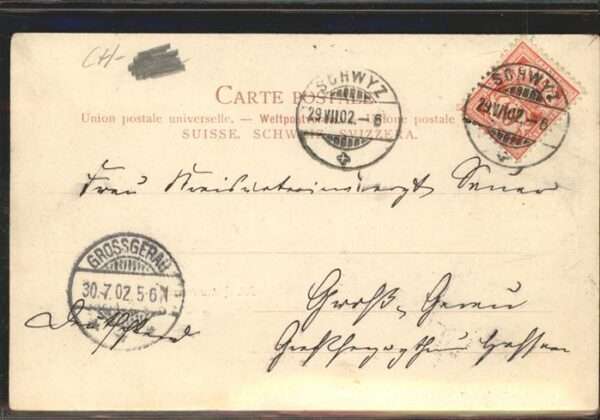 CH-
CARTE POSTALE
Union postale universelle. — Weltpostverein. — Unione postale
SUISSE. SCHWEIZ. SVIZZERA.
SCHWYZ
29.VII.02.–6
SCHWYZ
29.VII.02.–6
Frau Kreisveterinärarzt
GROSSGERAU
30.7.02.5-6N
Groß-Gerau
Großherzogthum Hessen
Deutschland